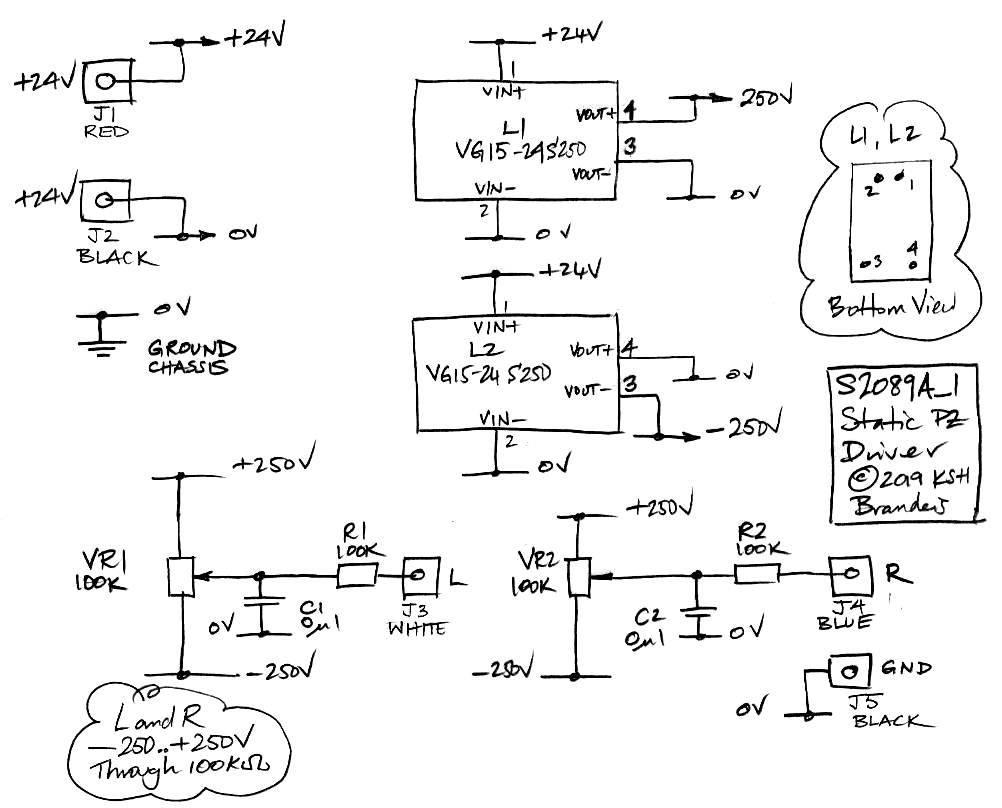 +24V
+24V
J1
RED
+24V
0V
J2
BLACK
0V
GROUND
CHASSIS
+24V
1
VIN+
L1
VG15-24S250
VOUT+ 4
250V
3
VOUT-
0V
VIN-
2
0V
+24V
1
VIN+
L2
VG15-24S250
VOUT+ 4
0V
VOUT- 3
-250V
VIN-
2
0V
L1, L2
2 1
3 4
Bottom View
S2089A_1
Static PZ
Driver
©2019 KSH
Brandeis
+250V
VR1
100K
R1
100K
L
J3
WHITE
C1
0μ1
0V
-250V
L and R
-250..+250V
Through 100KΩ
+250V
VR2
100K
R2
100K
R
J4
BLUE
C2
0μ1
0V
-250V
GND
J5
BLACK
0V